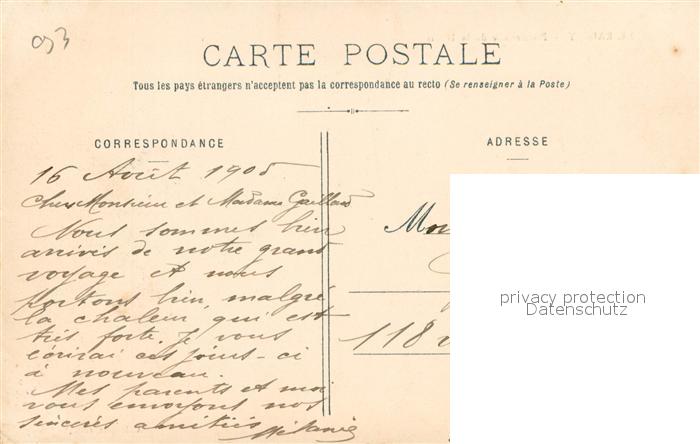 093
CARTE POSTALE
Tous les pays étrangers n'acceptent pas la correspondance au recto (Se renseigner à la Poste)
CORRESPONDANCE
16 Août 1905
Chers Monsieur et Madame Gaillard
Nous sommes bien
arrivés de notre grand
voyage et nous
portons bien, malgré
la chaleur qui est
très forte. Je vous
écrirai ces jours-ci
à nouveau.
Mes parents et moi
vous envoyons nos
sincères amitiés
Mélanie
ADRESSE
118
privacy protection
Datenschutz